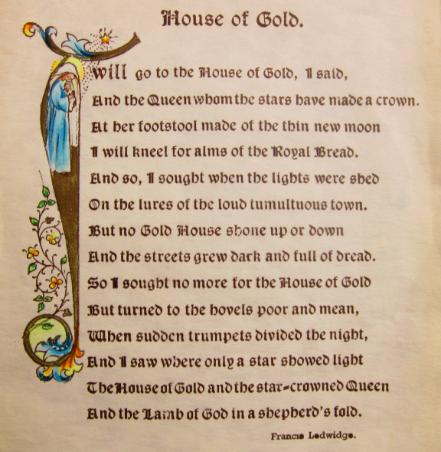 House of Gold.
I will go to the House of Gold, I said,
And the Queen whom the stars have made a crown.
At her footstool made of the thin new moon
I will kneel for alms of the Royal Bread.
And so, I sought when the lights were shed
On the lures of the loud tumultuous town.
But no Gold House shone up or down
And the streets grew dark and full of dread.
So I sought no more for the House of Gold
But turned to the hovels poor and mean,
When sudden trumpets divided the night,
And I saw where only a star showed light
The House of Gold and the star-crowned Queen
And the Lamb of God in a shepherd's fold.
Francis Ledwidge.